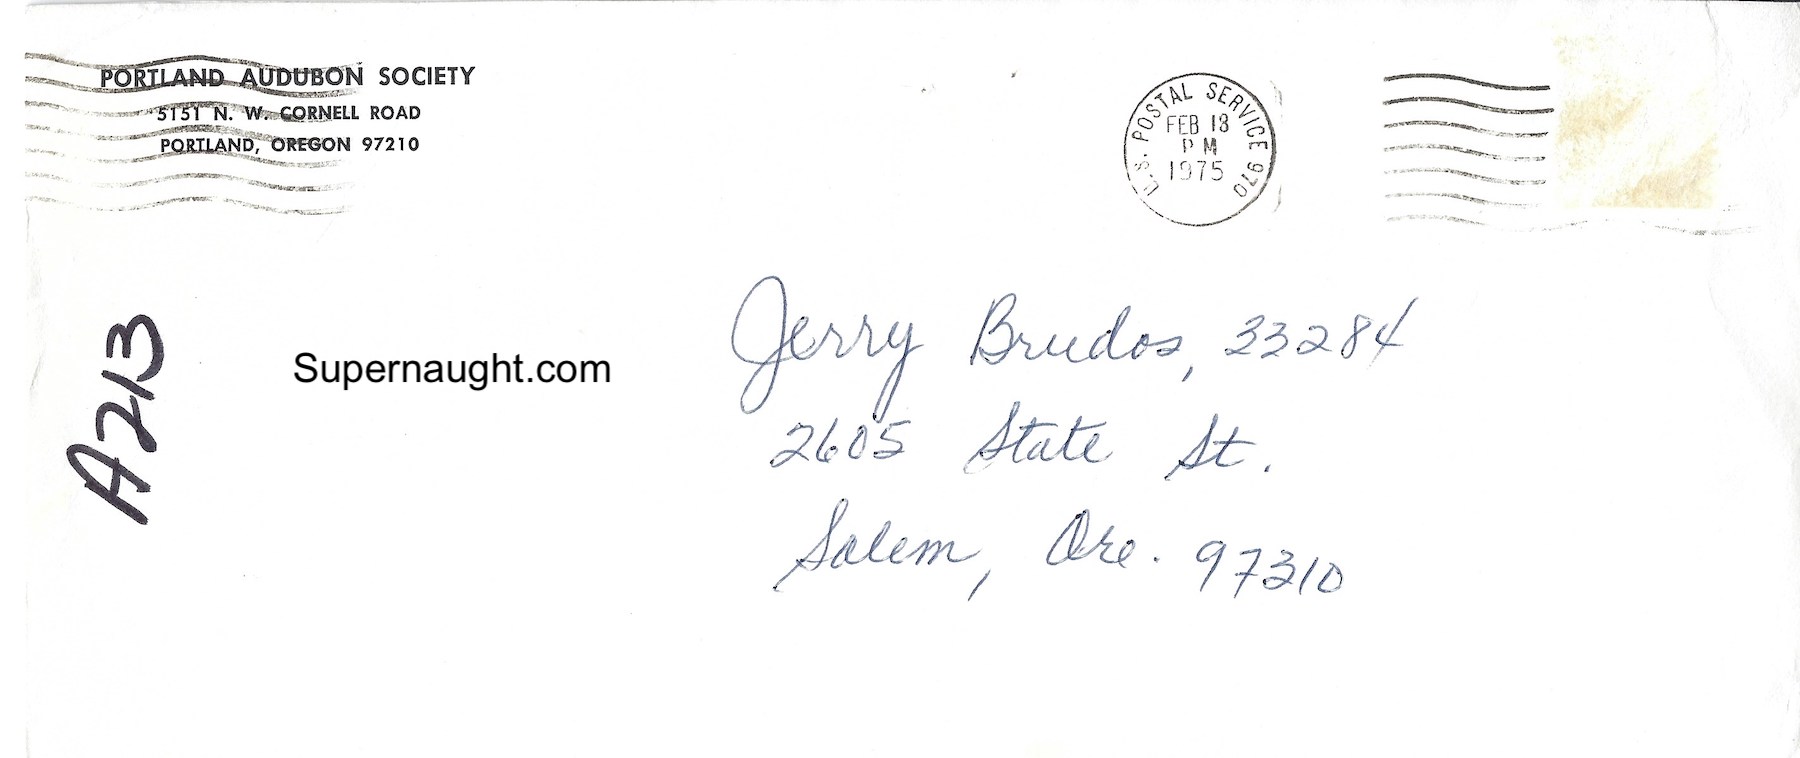 PORTLAND AUDUBON SOCIETY
5151 N. W. CORNELL ROAD
PORTLAND, OREGON 97210
U.S. POSTAL SERVICE 970
FEB 13
PM
1975
A213
Supernaught.com
Jerry Brudos, 33284
2605 State St.
Salem, Ore. 97310